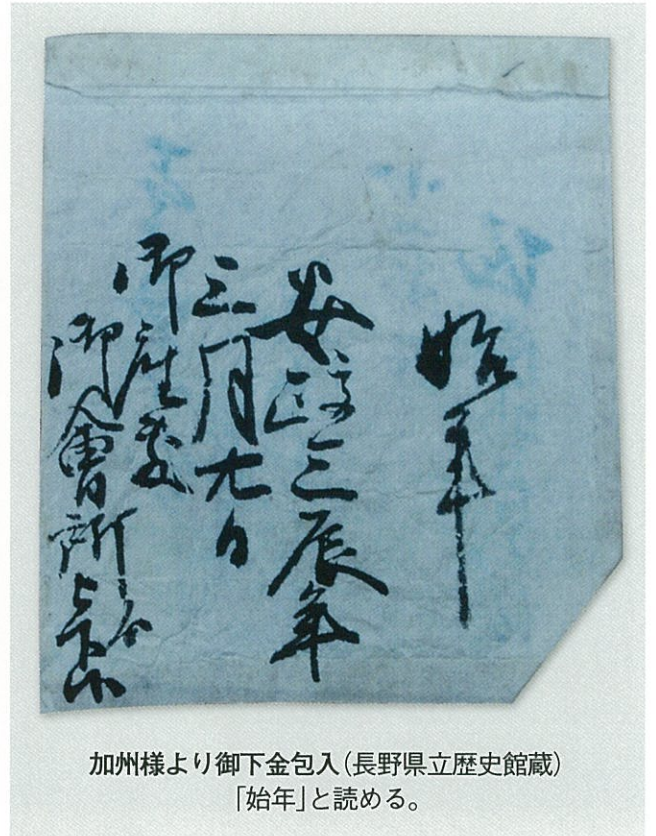 始年
安政三辰年
三月九日
御座敷
御會所
加州様より御下金包入(長野県立歴史館蔵)
「始年」と読める。